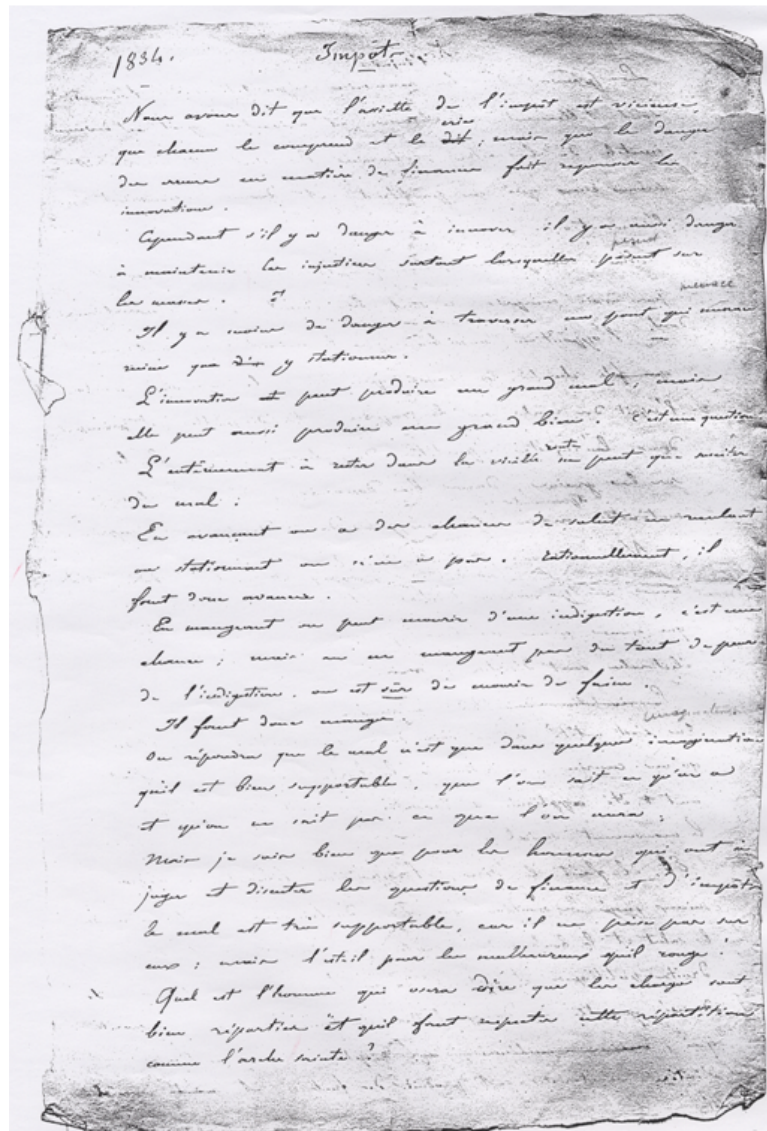 1834. Impôt.
Nous avons dit que l'assiette de l'impôt est vicieuse,
que chacun le comprend et le dit crie ; mais que le danger
des erreurs en matière de finances fait repousser les
innovations.
Cependant s'il y a danger à innover il y a aussi danger
à maintenir les injustices surtout lorsqu'elles pèsent pèsent sur
les masses.
Il y a moins de danger à traverser un pont qui menace menace
ruine que d'y stationner.
L'innovation peut produire un grand mal ; mais
elle peut aussi produire un grand bien. C'est une question
L'entêtement à rester dans la vieille route ne peut que
du mal :
En avançant on a des chances de salut en reculant
ou stationnant on n'en a pas. rationnellement, il
faut donc avancer.
En mangeant on peut mourir d'une indigestion, c'est une
chance ; mais en ne mangeant pas du tout de peur
de l'indigestion, on est sûr de mourir de faim
Il faut donc manger.
On répondra que le mal n'est que dans quelques imaginations
qu'il est bien supportable, que l'on sait ce qu'on a
et qu'on ne sait pas ce que l'on aura :
Mais je sais bien que pour les hommes qui ont à
juger et discuter les questions de finance et d'impôts
le mal est très supportable, car il ne pèse pas sur
eux ; mais l'est-il pour les malheureux qu'il ronge ?
Quel est l'homme qui osera dire que les charges sont
bien réparties et qu'il faut respecter cette répartition
comme l'arche sainte ?